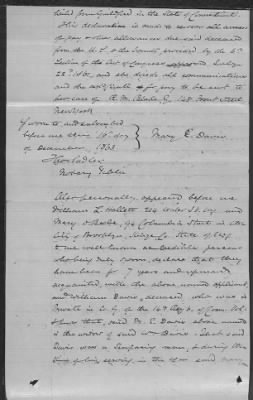 in the State of Connecticut
This declaration is made to recover all arrears
of pay or other allowances due said deceased
from the U.S. & the bounty provided by the 6th
Section of the Act of Congress approved July
22d 1861, and she directs all communications
and the certificate for pay to be sent to
her care of
New York
Sworn to and subscribed
before me this 10th day } Mary E. Davis
of December, 1863
Notary Public
Also personally appeared before me
William L. Hallett and
Mary 94 Columbia Street in the
City of Brooklyn, Kings Co. State of N.Y.
to me well known as credible persons
who being duly sworn, declare that they
have been for 7 years and upward
acquainted with the above named applicant
and William Davis, deceased, who was a
Private in Co. G. of the 14th Regt. of Conn. Vol.
that said M. E. Davis above named
is the widow of said Wm. Davis. that said
Davis was a temporary man, & during the
time of his service, in the